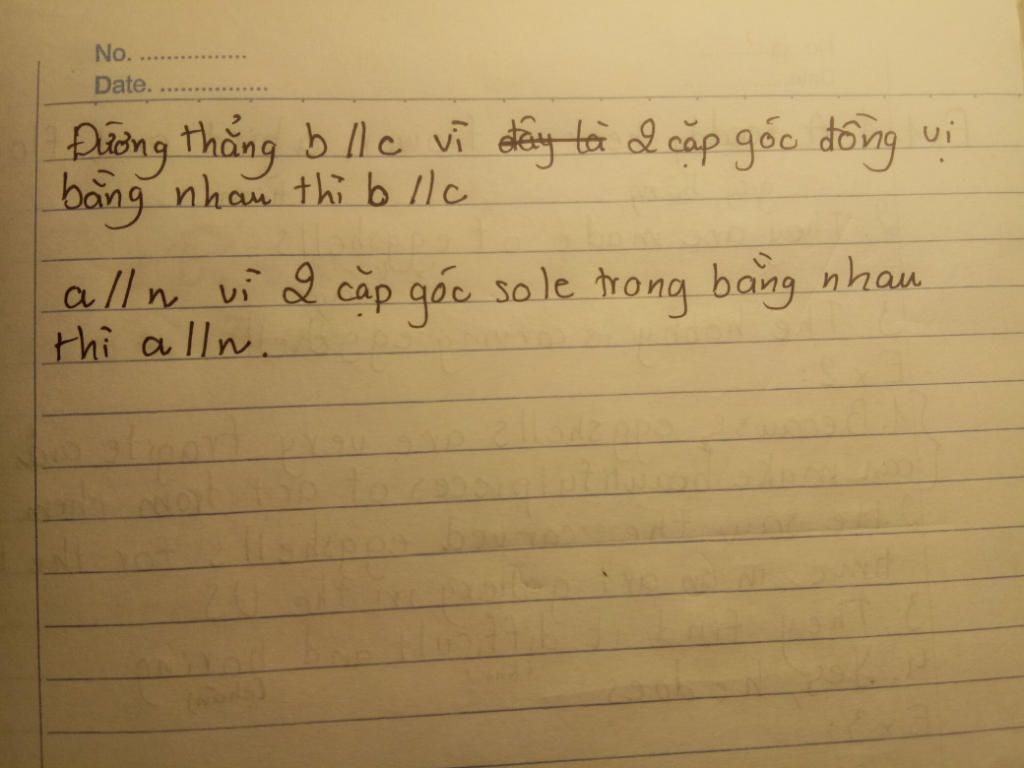 No. ................
Date. ................
Đường thẳng b // c vì đây là 2 cặp góc đồng vị
bằng nhau thì b // c
a // n vì 2 cặp góc sole trong bằng nhau
thì a // n.